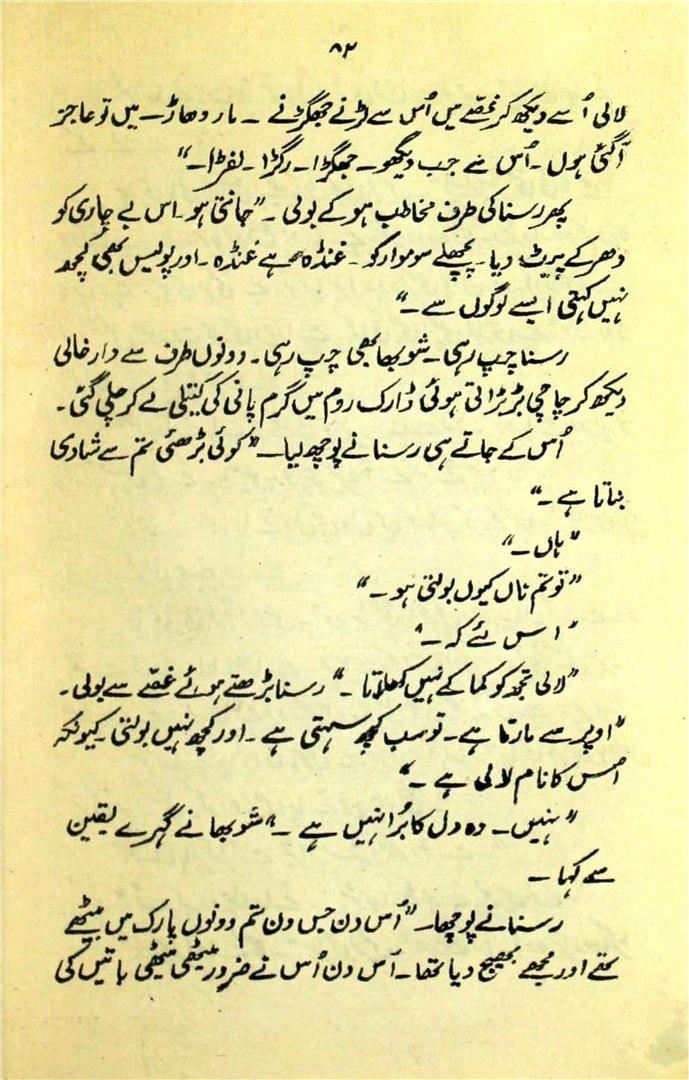 ۸۲
لالی اُسے دیکھ کر غصّے میں اُس سے لڑنے جھگڑنے ۔ مار دھاڑ ۔ میں تو عاجز
آ گئی ہوں ۔ اُس سے جب دیکھو ۔ جھگڑا ۔ رگڑا ۔ لفڑا ۔“
پھر رسنا کی طرف مخاطب ہو کے بولی ۔ ”جانتی ہو ۔ اس بے چاری کو
دھر کے پیٹ دیا ۔ پچھلے سوموار کو ۔ غنڈہ ہے غنڈہ ۔ اور پولیس بھی کچھ
نہیں کہتی ایسے لوگوں سے ۔“
رسنا چپ رہی ۔ شوبھا بھی چپ رہی ۔ دونوں طرف سے دار خالی
دیکھ کر چاچی بڑبڑاتی ہوئی ڈارک روم میں گرم پانی کی کیتلی لے کر چلی گئی ۔
اُس کے جاتے ہی رسنا نے پوچھ لیا ۔ ”کوئی بڑھئی تم سے شادی
بناتا ہے ۔“
”ہاں ۔“
”تو تم ناں کیوں بولتی ہو ۔“
”اس لئے کہ ۔“
”لالی تجھ کو کما کے نہیں کھلاتا ۔“ رسنا بڑھتے ہوئے غصّے سے بولی ۔
”اوپر سے مارتا ہے ۔ تو سب کچھ سہتی ہے ۔ اور کچھ نہیں بولتی ۔ کیونکہ
اُس کا نام لالی ہے ۔“
”نہیں ۔ وہ دل کا بُرا نہیں ہے ۔“ شوبھا نے گہرے یقین
سے کہا ۔
رسنا نے پوچھا ۔ ”اُس دن جس دن تم دونوں پارک میں بیٹھے
تھے اور مجھے بھیج دیا تھا ۔ اُس دن اُس نے ضرور میٹھی میٹھی باتیں کی